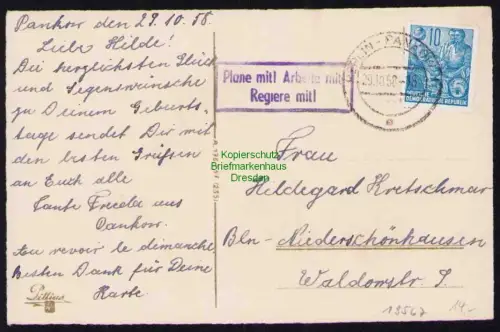 Pankow den 29.10.58.
Liebe Hilde!
Die herzlichsten Glück
und Segenswünsche
zu Deinem Geburts-
tage sendet Dir mit
den besten Grüßen
an Euch alle
Tante Frieda aus
Pankow.
Au revoir le dimanche
Besten Dank für Deine
Karte
Plane mit! Arbeite mit!
Regiere mit!
BERLIN-PANKOW
29.10.58
10
DEUTSCHE DEMOKRATISCHE REPUBLIK
5
Kopierschutz
Briefmarkenhaus
Dresden
Frau
Hildegard Kretschmar
Bln-Niederschönhausen
Waldowstr.
13567
14,-